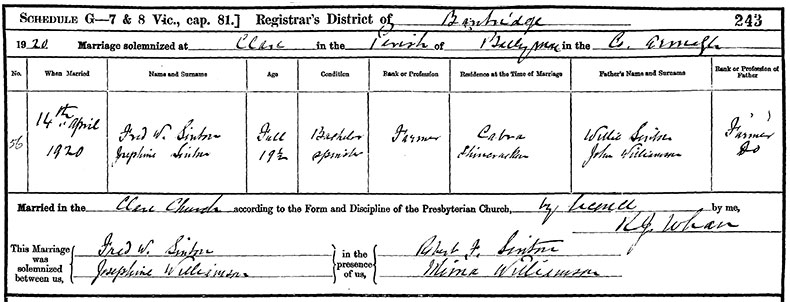 SCHEDULE G—7 & 8 Vic., cap. 81.] Registrar's District of Banbridge 243
1920 Marriage solemnized at Clare in the Parish of in the Co. Armagh
No. When Married Name and Surname Age Condition Rank or Profession Residence at the Time of Marriage Father's Name and Surname Rank or Profession of Father
56 14th April Fred W. Sinton Full Bachelor Farmer Cabra Willie Sinton Farmer
1920 Josephine Sinton 19½ Spinster John Williamson Do
Married in the Clare Church according to the Form and Discipline of the Presbyterian Church, by license by me,
Whan
This Marriage was solemnized between us, Fred W. Sinton in the presence of us, Robert F. Sinton
Josephine Williamson Mima Williamson